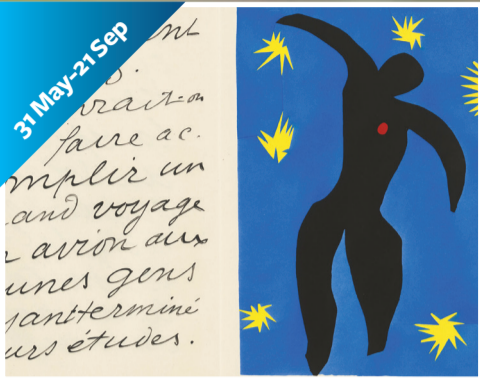 31 May-21 Sep
ent
o.
vrait-on
faire ac-
mplir un
and voyage
avion aux
unes gens
yant terminé
urs études.